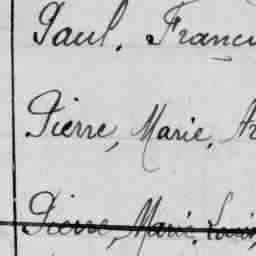 Paul. Franc
Pierre, Marie. A
Pierre, Marie. Louis,